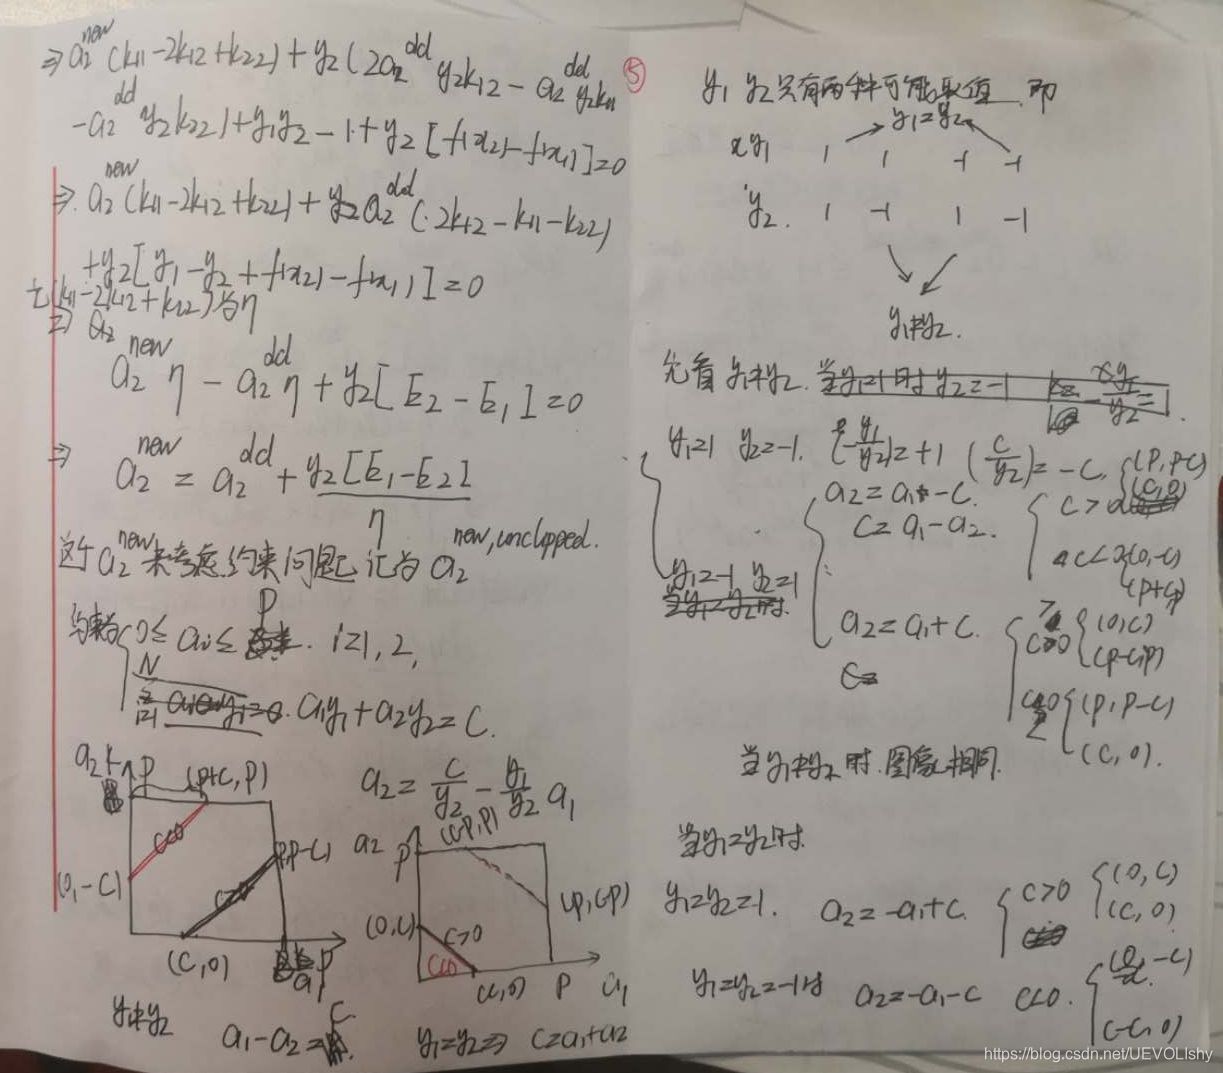 ⇒ a₂^new (k₁₁-2k₁₂+k₂₂) + y₂(2a₂^old y₂k₁₂ - a₂^old y₂k₁₁
-a₂^old y₂k₂₂)+y₁y₂-1+y₂[f(x₂)-f(x₁)]=0
⇒ a₂^new (k₁₁-2k₁₂+k₂₂)+y₂a₂^old (2k₁₂-k₁₁-k₂₂)
+y₂[y₁-y₂+f(x₂)-f(x₁)]=0
(k₁₁-2k₁₂+k₂₂)为η
⇒ a₂
a₂^new η - a₂^old η + y₂[E₂-E₁]=0
⇒ a₂^new = a₂^old + y₂[E₁-E₂]
η
a₂^new 未考虑约束问题 记为 a₂^new,unclipped.
约束为 0≤ ai ≤ P i=1,2,
N
Σ
i=1
a₁y₁+a₂y₂=C.
a₂ P (P+C,P)
a₂ = C/y₂ - y₁/y₂ a₁
C<0
(0,-C)
C>0
P,P-C)
(C,0)
P
a₁
y₁≠y₂
a₁-a₂=C.
a₂ P (C-P,P)
(P,C-P)
(0,C) C>0
C<0
(C,0) P a₁
y₁=y₂⇒ C=a₁+a₂
⑤
y₁ y₂只有两种可能取值 即
y₁=y₂
y₁ 1 1 -1 -1
y₂. 1 -1 1 -1
y₁≠y₂.
先看 y₁≠y₂. 当y₁=1时y₂=-1
y₁=1 y₂=-1. (-y₁/y₂)=+1 (C/y₂)=-C.
a₂=a₁-C.
C=a₁-a₂.
C>0
(P,P-C)
(C,0)
C<0
(0,-C)
(P+C,P)
y₁=-1 y₂=1
当y₁=y₂时.
a₂=a₁+C.
C=
C>0
(0,C)
(P-C,P)
C<0
(P,P-C)
(C,0).
当y₁≠y₂时.图像相同.
当y₁=y₂时.
y₁=y₂=1. a₂=-a₁+C. C>0
(0,C)
(C,0)
y₁=y₂=-1时 a₂=-a₁-C C<0.
(0,-C)
(-C,0)
https://blog.csdn.net/UEVOLIshy